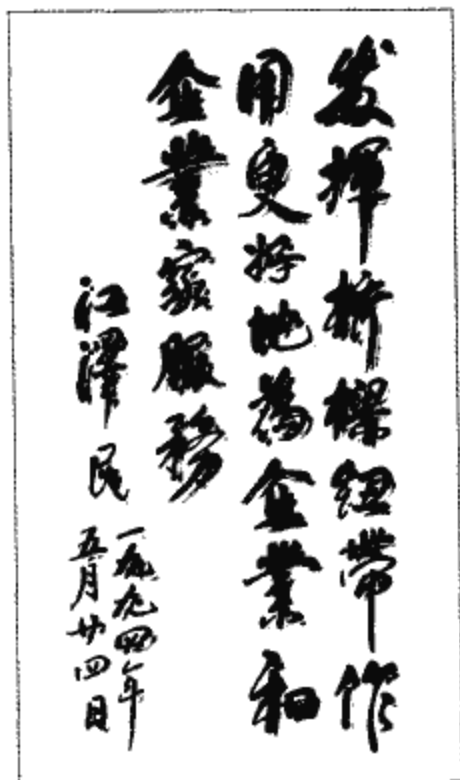 发挥桥樑纽带作
用更好地为企业和
企業家服務
江澤民
一九九四年
五月廿四日